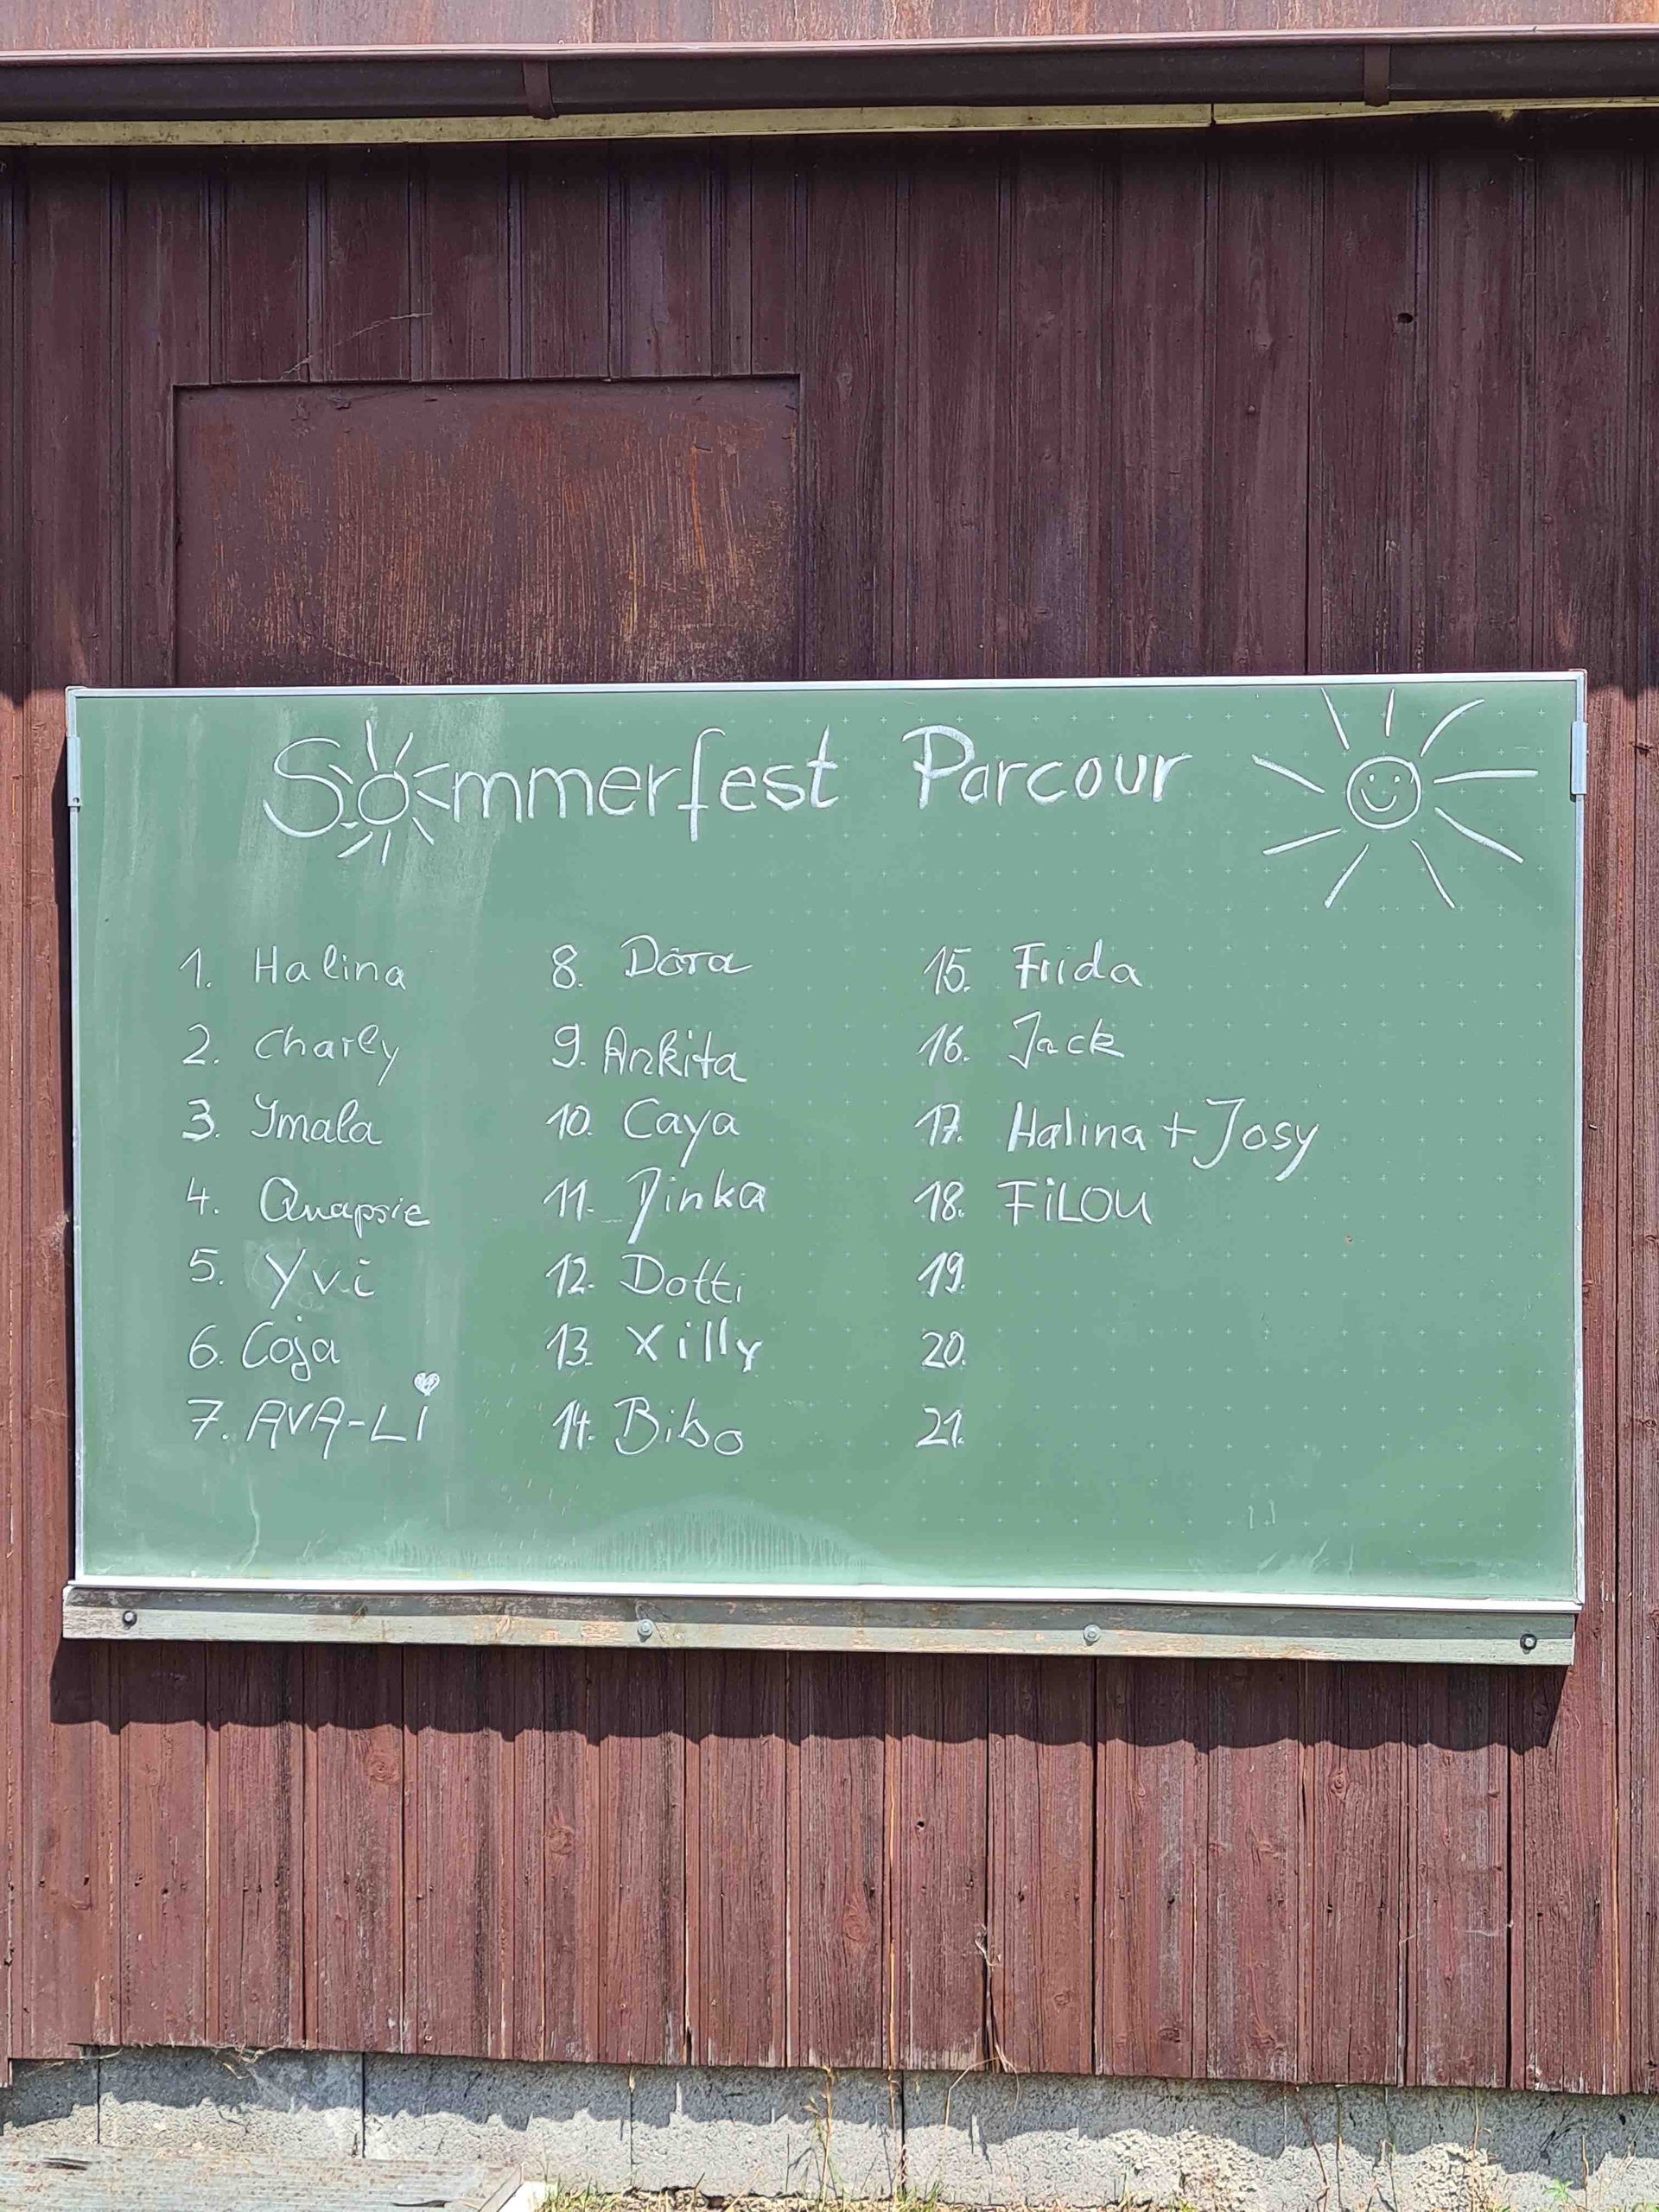 Sommerfest Parcour
1. Halina
2. Charly
3. Ymala
4. Quapsie
5. Yvi
6. Coja
7. AVA-Li
8. Dora
9. Ankita
10. Caya
11.
12. Dotti
13. Xilly
14. Bibo
15. Frida
16. Jack
17. Halina + Josy
18. FiLOU
19.
20.
21.